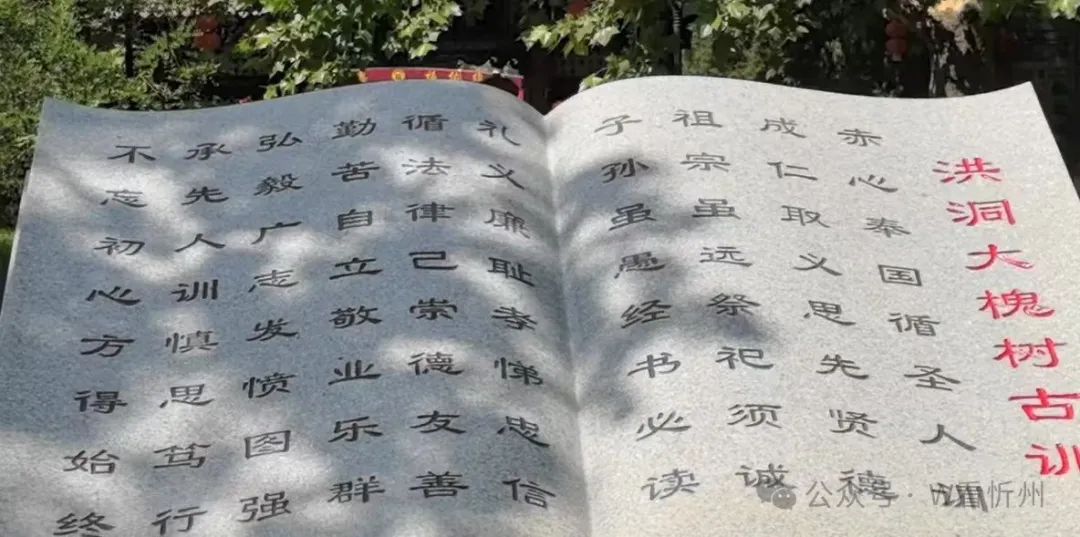 洪洞大槐树古训
赤心奉国循圣人训
成仁取义思先贤德
祖宗虽远祭祀须诚
子孙虽愚经书必读
礼义廉耻孝悌忠信
循法律己崇德友善
勤苦自立敬业乐群
弘毅广志发愤图强
承先人训慎思笃行
不忘初心方得始终
公众号 · 忻州